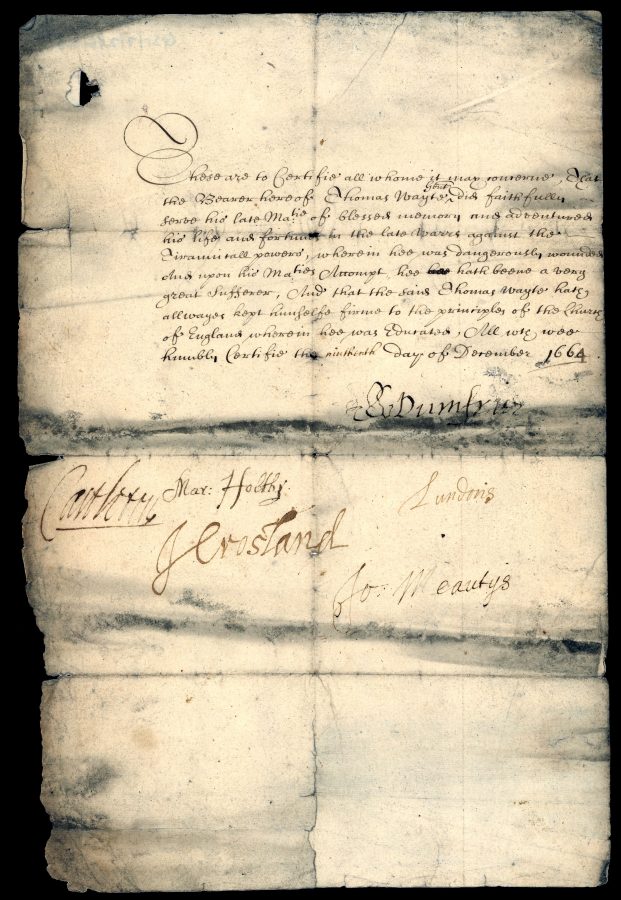 These are to Certifie all whome it may concerne, That
the Bearer hereof Thomas Wayte Gent: did faithfully
serve his late Ma:tie of blessed memory and adventured
his life and fortunes in the late Warrs against the
Tirannicall powers, wherein hee was dangerously wounded
And upon his Ma:ties Attempt, hee hath beene a very
great Sufferer, And that the said Thomas Wayte hath
allwayes kept himselfe firme to the principles of the Church
of England wherein hee was Educated, All wch wee
humbly Certifie the nintenth day of December 1664.
Dumfris
Castleton
Mar: Holtby
Lundins
J Crosland
Jo: Meautys